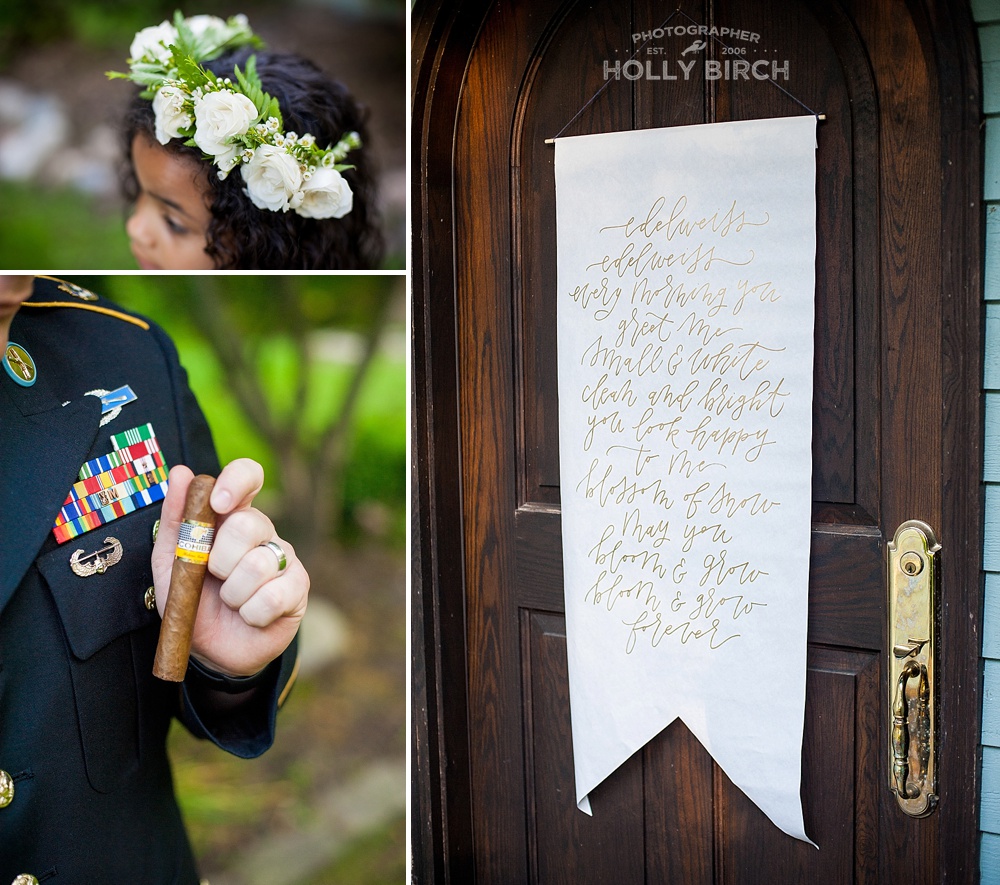 PHOTOGRAPHER
EST. 2006
HOLLY BIRCH
edelweiss
edelweiss
every morning you
greet me
small & white
clean and bright
you look happy
to me
blossom of snow
may you
bloom & grow
bloom & grow
forever
COHIBA